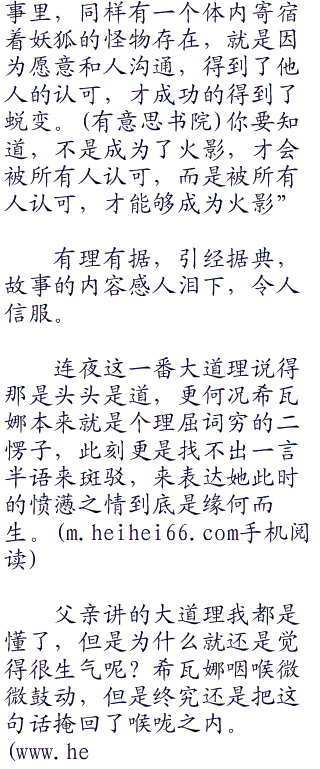 事里，同样有一个体内寄宿
着妖狐的怪物存在，就是因
为愿意和人沟通，得到了他
人的认可，才成功的得到了
蜕变。(有意思书院)你要知
道，不是成为了火影，才会
被所有人认可，而是被所有
人认可，才能够成为火影”
有理有据，引经据典，
故事的内容感人泪下，令人
信服。
连夜这一番大道理说得
那是头头是道，更何况希瓦
娜本来就是个理屈词穷的二
愣子，此刻更是找不出一言
半语来斑驳，来表达她此时
的愤懑之情到底是缘何而
生。(m.heihei66.com手机阅
读)
父亲讲的大道理我都是
懂了，但是为什么就还是觉
得很生气呢？希瓦娜咽喉微
微鼓动，但是终究还是把这
句话掩回了喉咙之内。
(www.he